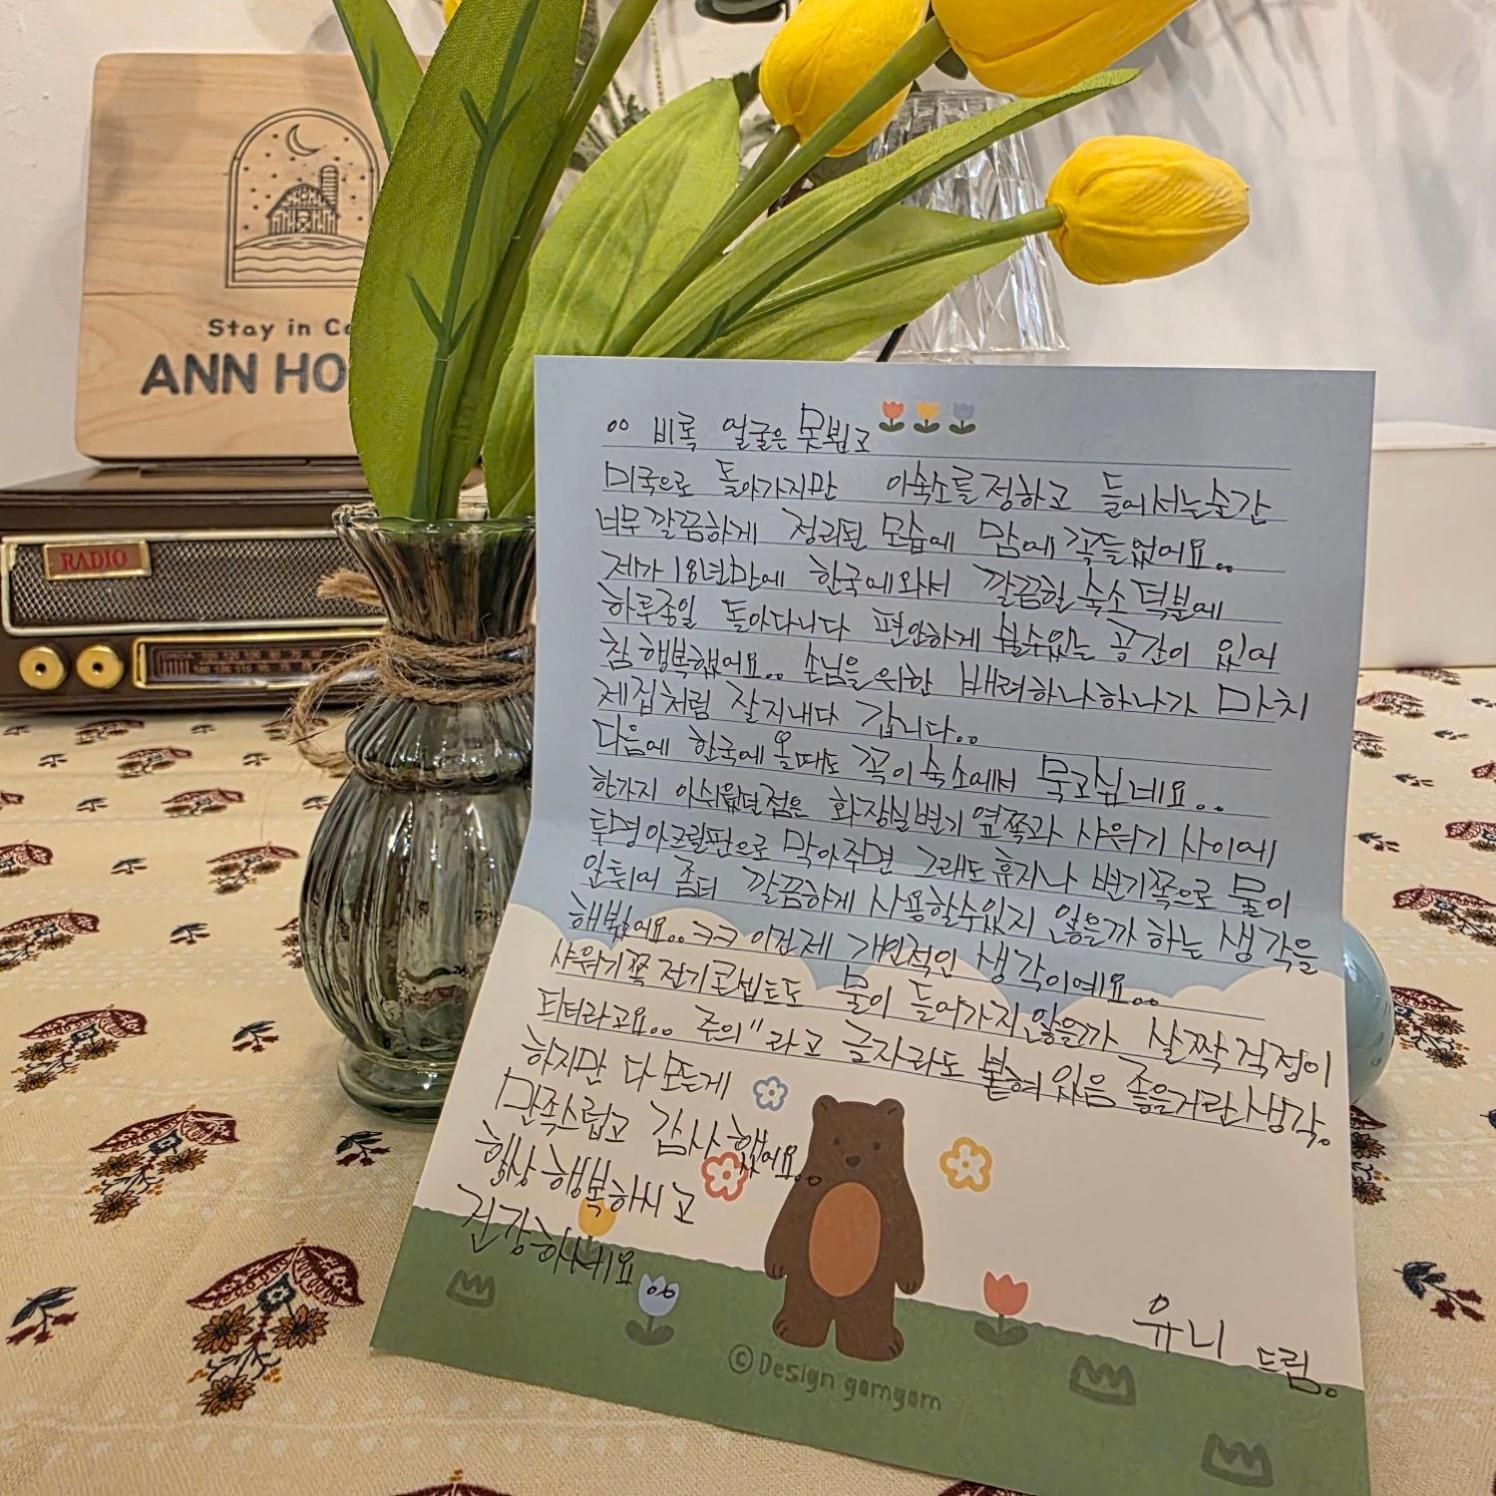 Stay in Co
ANN HO
RADIO
°° 비록 얼굴은 못뵙고
미국으로 돌아가지만 이숙소를 정하고 들어서는순간
너무 깔끔하게 정리된 모습에 맘에 꼭들었어요..
제가 18년만에 한국에와서 깔끔한 숙소 덕분에
하루종일 돌아다니다 편안하게 쉴수있는 공간이 있어
참 행복했어요.. 손님을 위한 배려하나하나가 마치
제집처럼 잘지내다 갑니다..
다음에 한국에 올때도 꼭 이 숙소에서 묵고싶네요..
한가지 아쉬웠던점은 화장실변기 옆쪽과 샤워기 사이에
투명아크릴판으로 막아주면 그래도 휴지나 변기쪽으로 물이
안튀어 좀더 깔끔하게 사용할수있지 않을까 하는 생각을
해봤어요.. ㅋㅋ 이건제 개인적인 생각이예요..
샤워기쪽 전기콘셉트도 물이 들어가지않을까 살짝 걱정이
되더라고요.. 주의" 라고 글자라도 붙혀 있음 좋을거란생각.
하지만 다 모든게
만족스럽고 감사했어요..
항상 행복하시고
건강하세요
유니 드림.
© Design gomgom